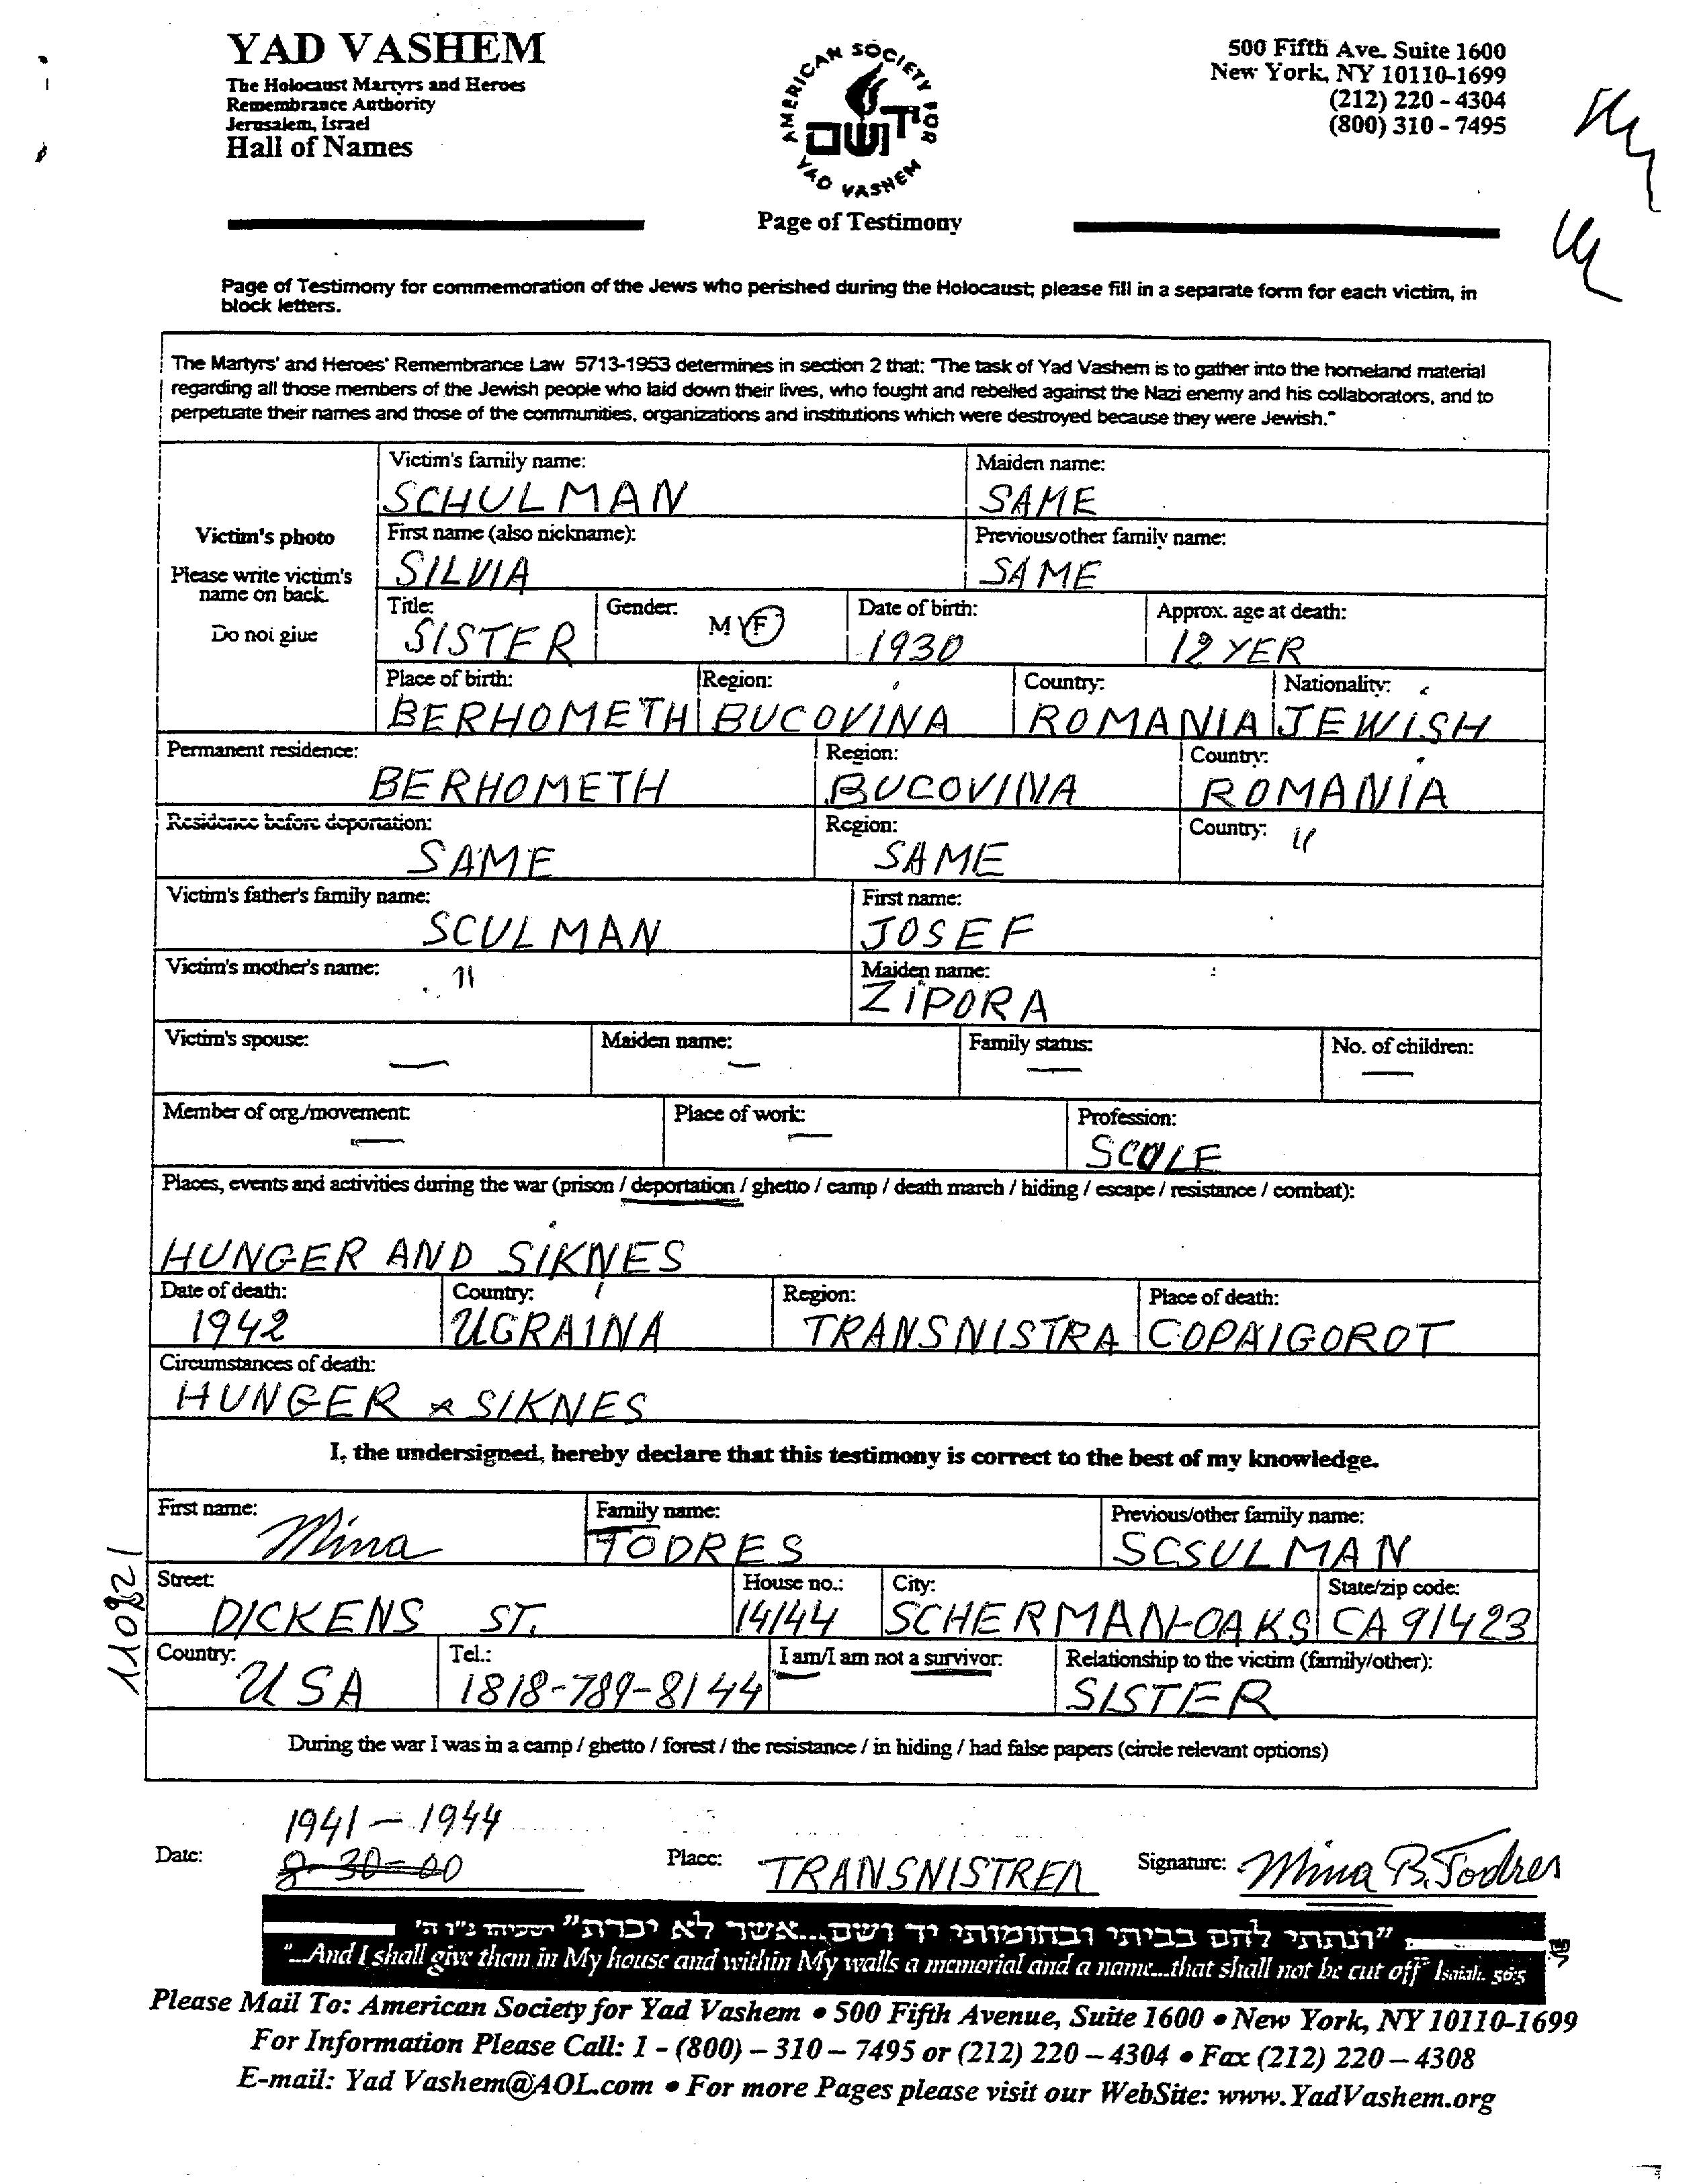 YAD VASHEM
The Holocaust Martyrs and Heroes
Remembrance Authority
Jerusalem, Israel
Hall of Names
AMERICAN SOCIETY FOR
יד ושם
YAD VASHEM
Page of Testimony
500 Fifth Ave. Suite 1600
New York, NY 10110-1699
(212) 220 - 4304
(800) 310 - 7495
Page of Testimony for commemoration of the Jews who perished during the Holocaust; please fill in a separate form for each victim, in
block letters.
The Martyrs' and Heroes' Remembrance Law 5713-1953 determines in section 2 that: "The task of Yad Vashem is to gather into the homeland material
regarding all those members of the Jewish people who laid down their lives, who fought and rebelled against the Nazi enemy and his collaborators, and to
perpetuate their names and those of the communities, organizations and institutions which were destroyed because they were Jewish."
Victim's photo
Please write victim's
name on back.
Do not glue
Victim's family name: Maiden name:
SCHULMAN SAME
First name (also nickname): Previous/other family name:
SILVIA SAME
Title: Gender: M / F Date of birth: Approx. age at death:
SISTER 1930 12 YER
Place of birth: Region: Country: Nationality:
BERHOMETH BUCOVINA ROMANIA JEWISH
Permanent residence: Region: Country:
BERHOMETH BUCOVINA ROMANIA
Residence before deportation: Region: Country: "
SAME SAME
Victim's father's family name: First name:
SCULMAN JOSEF
Victim's mother's name: " Maiden name:
ZIPORA
Victim's spouse: Maiden name: Family status: No. of children:
— — — —
Member of org./movement: Place of work: Profession:
— — SCOLE
Places, events and activities during the war (prison / deportation / ghetto / camp / death march / hiding / escape / resistance / combat):
HUNGER AND SIKNES
Date of death: Country: Region: Place of death:
1942 UGRAINA TRANSNISTRA COPAIGOROT
Circumstances of death:
HUNGER & SIKNES
I, the undersigned, hereby declare that this testimony is correct to the best of my knowledge.
First name: Family name: Previous/other family name:
Mina TODRES SCSULMAN
Street: House no.: City: State/zip code:
DICKENS ST. 14144 SCHERMAN-OAKS CA 91423
Country: Tel.: I am/I am not a survivor: Relationship to the victim (family/other):
USA 1818-789-8144 SISTER
During the war I was in a camp / ghetto / forest / the resistance / in hiding / had false papers (circle relevant options)
1941 - 1944
Date: 8-30-00 Place: TRANSNISTREA Signature: Mina B. Todres
"ונתתי להם בביתי ובחומותי יד ושם...אשר לא יכרת" ישעיהו נ"ו ה'
"...And I shall give them in My house and within My walls a memorial and a name...that shall not be cut off" Isaiah. 56:5
Please Mail To: American Society for Yad Vashem • 500 Fifth Avenue, Suite 1600 • New York, NY 10110-1699
For Information Please Call: 1 - (800) – 310 – 7495 or (212) 220 – 4304 • Fax (212) 220 – 4308
E-mail: Yad Vashem@AOL.com • For more Pages please visit our WebSite: www.YadVashem.org